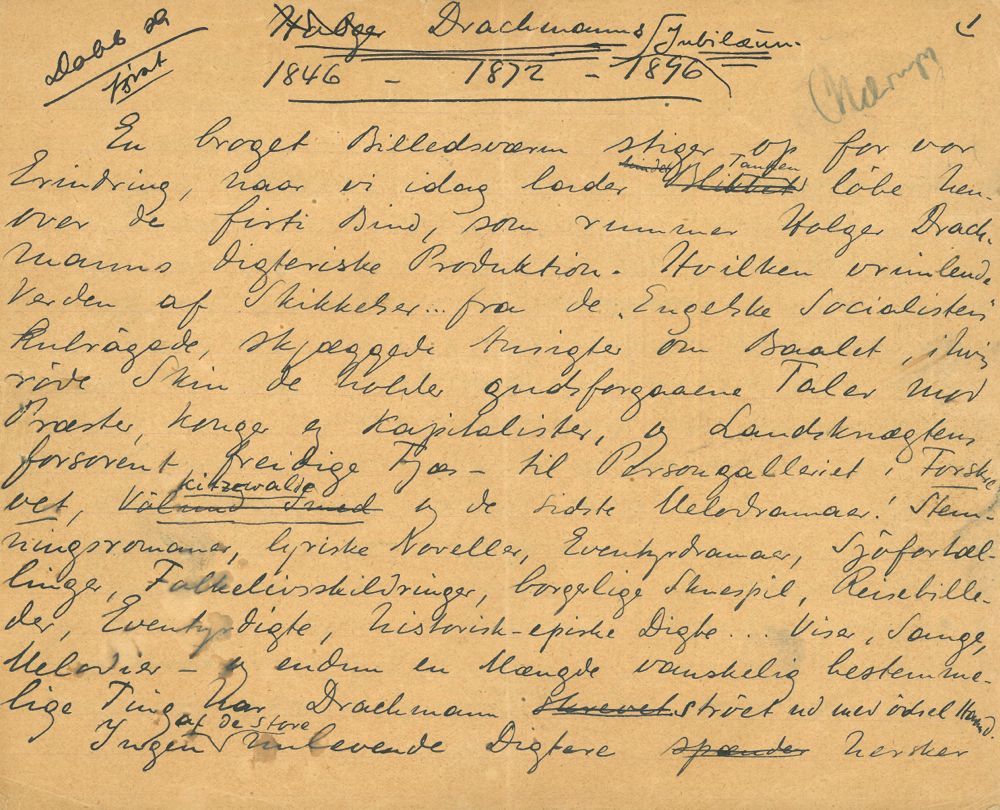 1
Holger Drachmanns Jubilæum.
først
1846 - 1872 - 1896
En broget Billedsværm stiger op for vor
Tanken
Erindring, naar vi idag lader Blikket løbe hen-
over de firti Bind, som rummer Holger Drach-
manns digteriske Produktion. Hvilken vrimlende
Verden af Skikkelser... fra de "Engelske Socialisters"
skjæggede Ansigter om Baalet, i hvis
røde Skin de holder gudsforgaaene Taler mod
Præster, Konger og Kapitalister, og Landsknægtens
forsorent freidige Fjæs - til Persongalleriet i Forskre-
vet, Vølund Smed og de sidste Melodramaer! Stem-
ningsromaner, lyriske Noveller, Eventyrdramaer, Sjøfortæl-
linger, Folkelivsskildringer, borgerlige Skuespil, Reisebille-
der, Eventyrdigte, historisk-episke Digte... Viser, Sange,
Melodier - og endnu en Mængde vanskelig bestemme-
lige Ting har Drachmann skrevet strøet ud med ødsel Haand.
af de store
Ingen nulevende Digtere spænder hersker